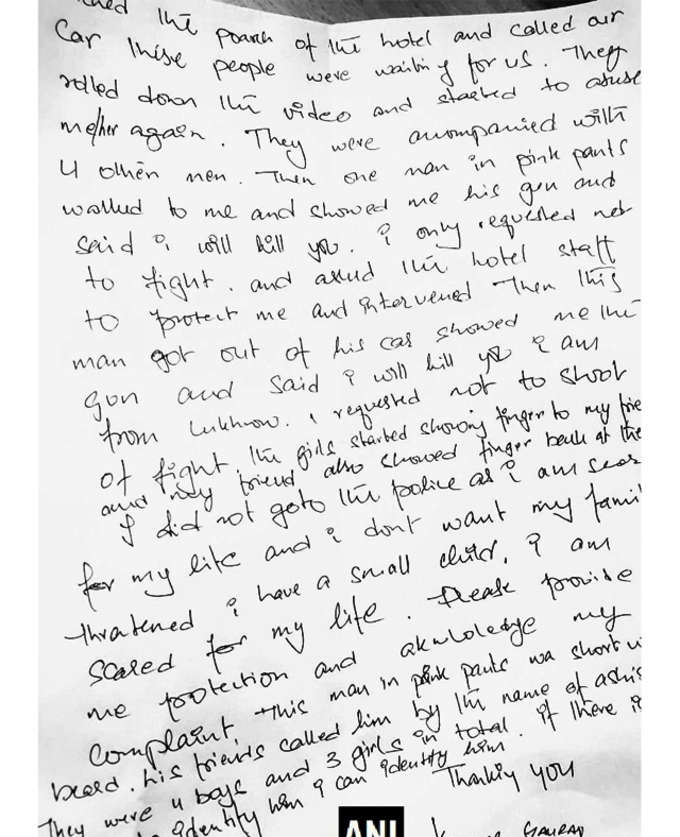 the porch of the hotel and called our
Car these people were waiting for us. They
rolled down the video and started to abuse
me/her again. They were accompanied with
4 other men. Then one man in pink pants
walked to me and showed me his gun and
said i will kill you. i only requested not
to fight. and asked the hotel staff
to protect me and intervened Then this
man got out of his car showed me the
gun and said i will kill you i am
from Lukhnow. i requested not to shoot
of fight. the girls started showing finger to my frie
and my friend also showed finger back at the
I did not goto the police as i am scar
for my life and i dont want my famil
thratened i have a small child, i am
scared for my life. Please provide
me protection and aknloledge my
Complaint. this man in pink pants wa short w
beard. his friends called him by the name of ashis
They were 4 boys and 3 girls in total. if there is
identity him i can identity him
Thankiy you
ANI